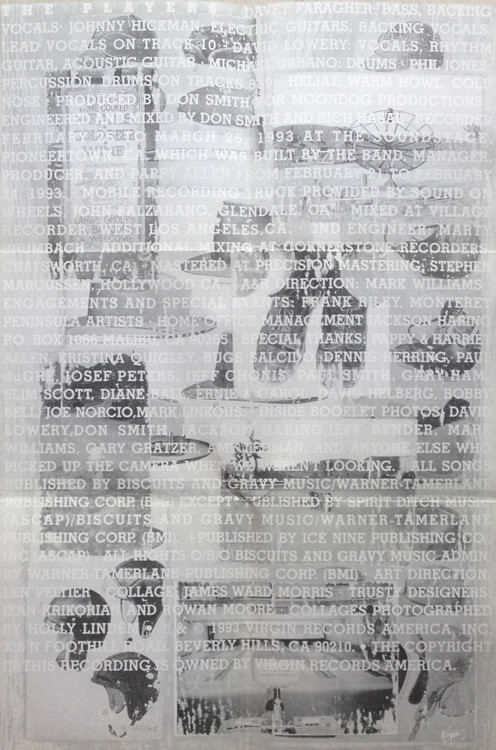 THE PLAYERS DAVEY FARAGHER: BASS, BACKING
VOCALS· JOHNNY HICKMAN: ELECTRIC GUITARS, BACKING VOCALS,
LEAD VOCALS ON TRACK 10· DAVID LOWERY: VOCALS, RHYTHM
GUITAR, ACOUSTIC GUITAR· MICHAEL URBANO: DRUMS PHIL JONES:
PERCUSSION, DRUMS ON TRACKS HELIAT: WARM HOWL, COLD
NOSE· PRODUCED BY DON SMITH FOR MOONDOG PRODUCTIONS
ENGINEERED AND MIXED BY DON SMITH AND RICH HASAL RECORDED
FEBRUARY 25 TO MARCH 25, 1993 AT THE SOUNDSTAGE
PIONEERTOWN, CA. WHICH WAS BUILT BY THE BAND, MANAGER,
PRODUCER, AND ALLEN FROM FEBRUARY TO FEBRUARY
1993 MOBILE RECORDING TRUCK PROVIDED BY SOUND ON
WHEELS, JOHN FALZARANO, GLENDALE, CA. MIXED AT VILLAGE
RECORDER, WEST LOS ANGELES, CA. 2ND ENGINEER, MARTY
ADDITIONAL MIXING AT CORNERSTONE RECORDERS
CA MASTERED AT PRECISION MASTERING, STEPHEN
MARCUSSEN, HOLLYWOOD CA A&R DIRECTION: MARK WILLIAMS
ENGAGEMENTS AND SPECIAL EVENTS: FRANK RILEY, MONTEREY
PENINSULA ARTISTS· HOME OFFICE MANAGEMENT JACKSON HARING
P.O. BOX 1066 MALIBU, CA 90265 SPECIAL THANKS: PAPPY & HARRIET
CHRISTINA QUIGLEY, BUGS SALCIDO, DENNIS HERRING, PAUL
JOSEF PETERS, JEFF CHONIS, SMITH, GARY HAM
SLIM SCOTT, DIANE ERNIE & CAROL, DAVID HELBERG, BOBBY
BELL, JOE NORCIO, MARK LINKOUS· INSIDE BOOKLET PHOTOS, DAVID
LOWERY, DON SMITH, JACKSON HARING, JEFF BENDER, MARK
WILLIAMS, GARY GRATZER, AND ANYONE ELSE WHO
PICKED UP THE CAMERA WHEN WE WEREN'T LOOKING. ALL SONGS
PUBLISHED BY BISCUITS AND GRAVY MUSIC/WARNER-TAMERLANE
PUBLISHING CORP. (BMI) EXCEPT PUBLISHED BY SPIN DITCH MUSIC
(ASCAP)/BISCUITS AND GRAVY MUSIC/WARNER-TAMERLANE
PUBLISHING CORP. (BMI), +PUBLISHED BY ICE NINE PUBLISHING CO.
INC. (ASCAP). ALL RIGHTS O/B/O BISCUITS AND GRAVY MUSIC ADMIN.
BY WARNER-TAMERLANE PUBLISHING CORP. (BMI). ART DIRECTION:
LEN PELTIER COLLAGE: JAMES WARD MORRIS TRUSTY DESIGNERS:
JEAN KRIKORIAN AND ROWAN MOORE COLLAGES PHOTOGRAPHED
BY HOLLY LINDEM & 1993 VIRGIN RECORDS AMERICA, INC.
338 N FOOTHILL ROAD, BEVERLY HILLS, CA 90210. THE COPYRIGHT
IN THIS RECORDING IS OWNED BY VIRGIN RECORDS AMERICA.